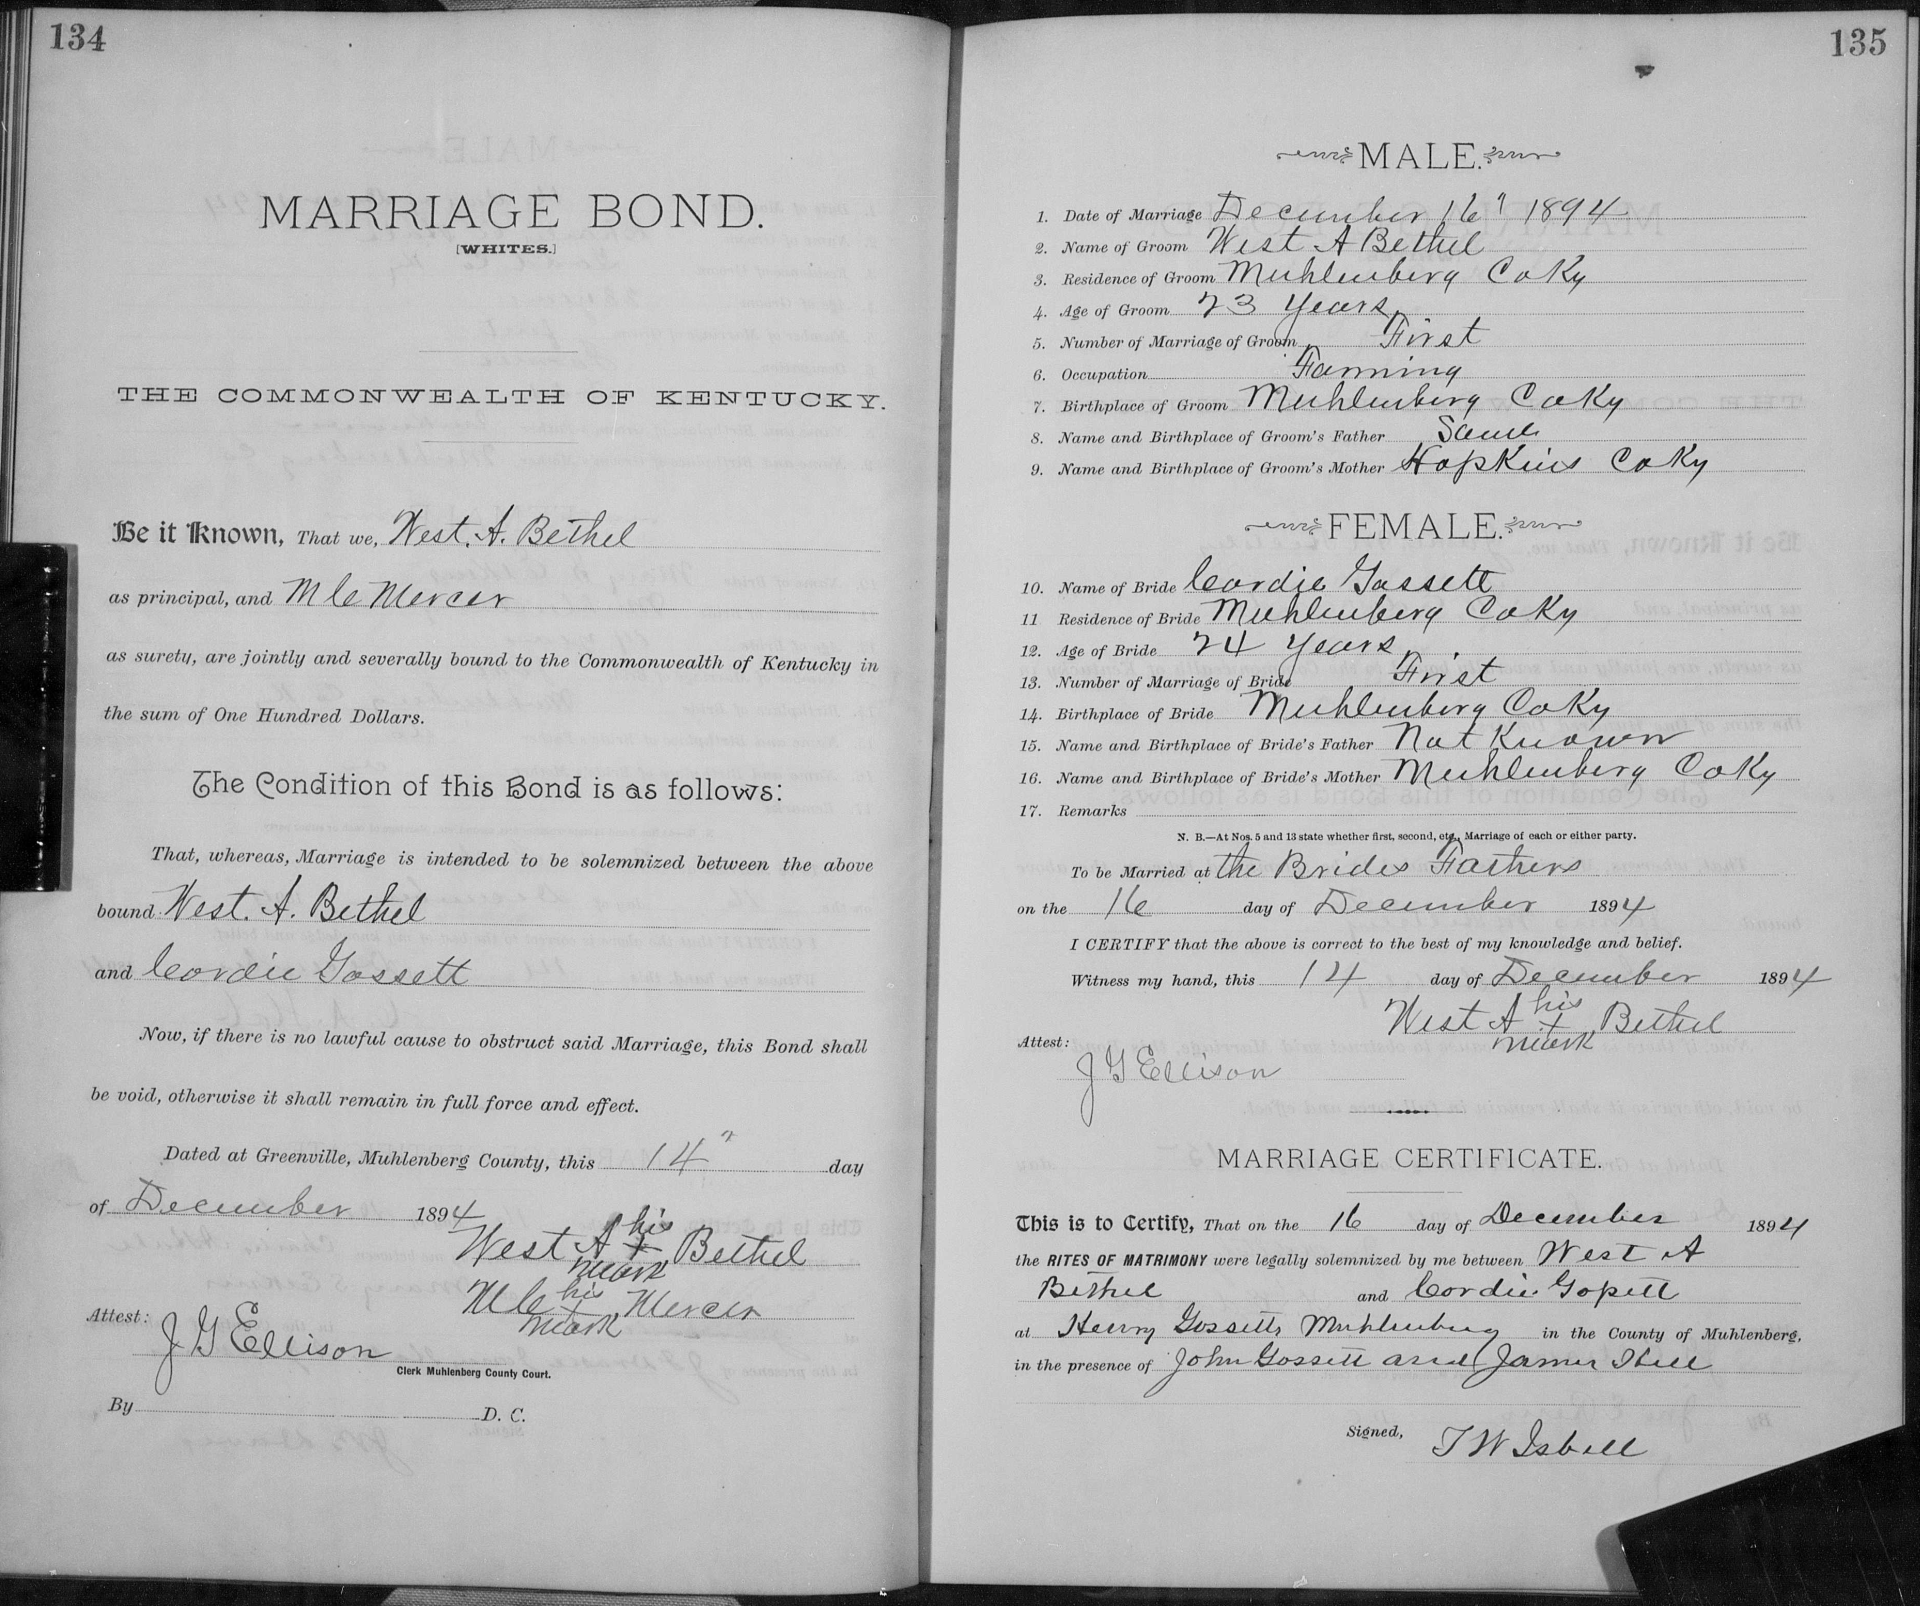 134
MARRIAGE BOND.
[WHITES.]
THE COMMONWEALTH OF KENTUCKY.
Be it Known, That we, West. A. Bethel
as principal, and M C Mercer
as surety, are jointly and severally bound to the Commonwealth of Kentucky in
the sum of One Hundred Dollars.
The Condition of this Bond is as follows:
That, whereas, Marriage is intended to be solemnized between the above
bound West. A. Bethel
and Cordie Gossett
Now, if there is no lawful cause to obstruct said Marriage, this Bond shall
be void, otherwise it shall remain in full force and effect.
Dated at Greenville, Muhlenberg County, this 14" day
of December 1894
West A his x mark Bethel
M C his x mark Mercer
Attest: J G Ellison
Clerk Muhlenberg County Court.
By D. C.
135
MALE.
1. Date of Marriage December 16" 1894
2. Name of Groom West A Bethel
3. Residence of Groom Muhlenberg Co Ky
4. Age of Groom 23 Years
5. Number of Marriage of Groom First
6. Occupation Farming
7. Birthplace of Groom Muhlenberg Co Ky
8. Name and Birthplace of Groom's Father Same
9. Name and Birthplace of Groom's Mother Hopkins Co Ky
FEMALE.
10. Name of Bride Cordie Gossett
11 Residence of Bride Muhlenberg Co Ky
12. Age of Bride 24 Years
13. Number of Marriage of Bride First
14. Birthplace of Bride Muhlenberg Co Ky
15. Name and Birthplace of Bride's Father Not Known
16. Name and Birthplace of Bride's Mother Muhlenberg Co Ky
17. Remarks
N. B.—At Nos. 5 and 13 state whether first, second, etc., Marriage of each or either party.
To be Married at the Brides Fathers
on the 16 day of December 1894
I CERTIFY that the above is correct to the best of my knowledge and belief.
Witness my hand, this 14 day of December 1894
West A his x mark Bethel
Attest:
J G Ellison
MARRIAGE CERTIFICATE.
This is to Certify, That on the 16 day of December 1894
the RITES OF MATRIMONY were legally solemnized by me between West A
Bethel and Cordie Gossett
at Henry Gossetts Muhlenberg in the County of Muhlenberg,
in the presence of John Gossett and James
Signed, T W Isbell